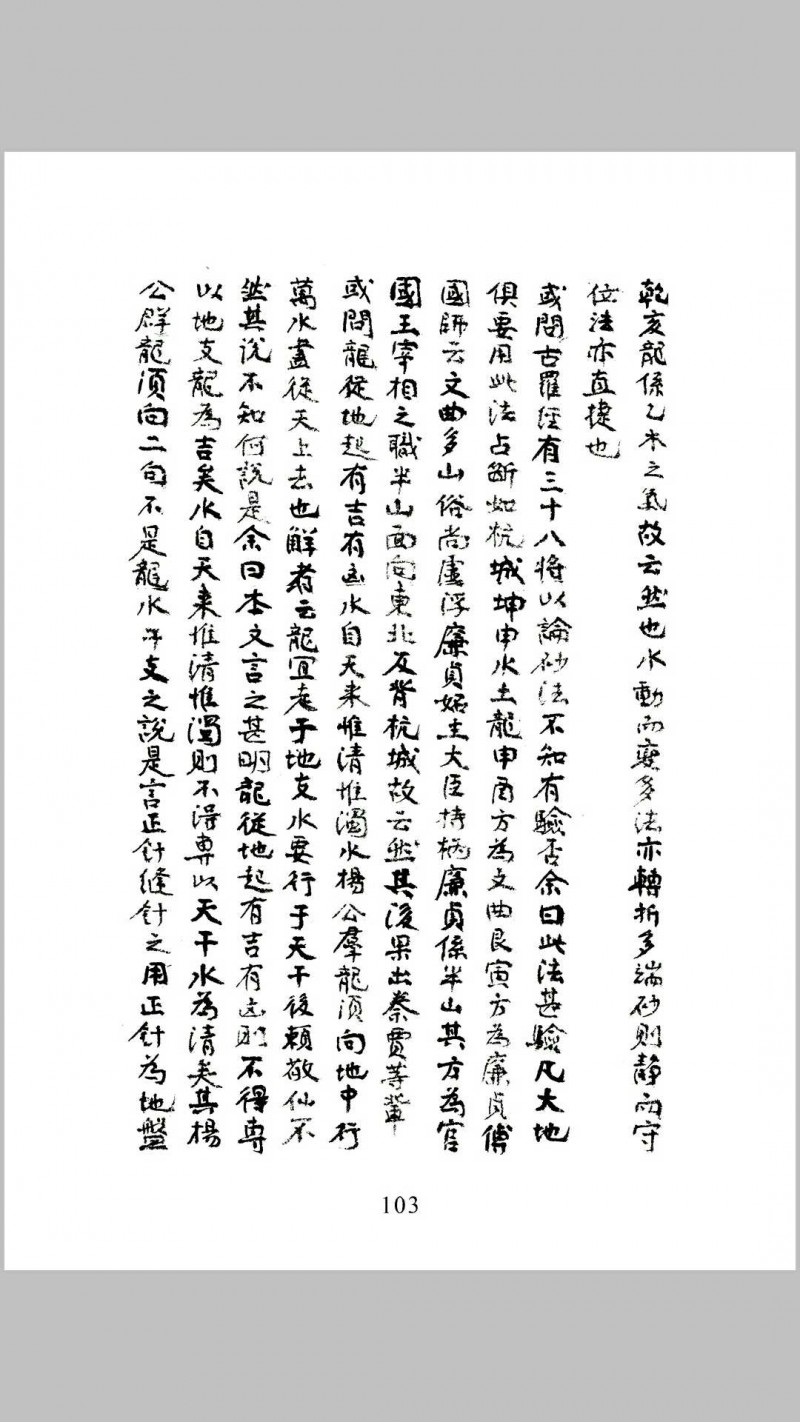 乾亥龍係乙木之氣故云然也水動而變多法亦轉折多端砂則静而守
位法亦直捷也
或問古羅經有三十八將以論砂法不知有驗否余曰此法甚驗凡大地
俱要用此法占斷如杭城坤申水土龍申酉方為文曲艮寅方為廉貞傅
國師云文曲多山俗尚虛浮廉貞妬主大臣持柄廉貞係半山其方為官
國王宰相之職半山面向東北反背杭城故云然其後果出秦賈等輩
或問龍從地起有吉有凶水自天来惟清惟濁水楊公羣龍須向地中行
萬水盡從天上去也解者云龍宜走于地支水要行于天干後頼敬仙不
然其說不知何說是余曰本文言之甚明龍從地起有吉有凶則不得専
以地支龍為吉矣水自天来惟清惟濁則不淂専以天干水為清矣其楊
公群龍須向二句不是龍水干支之說是言正針縫針之用正針為地盤
103